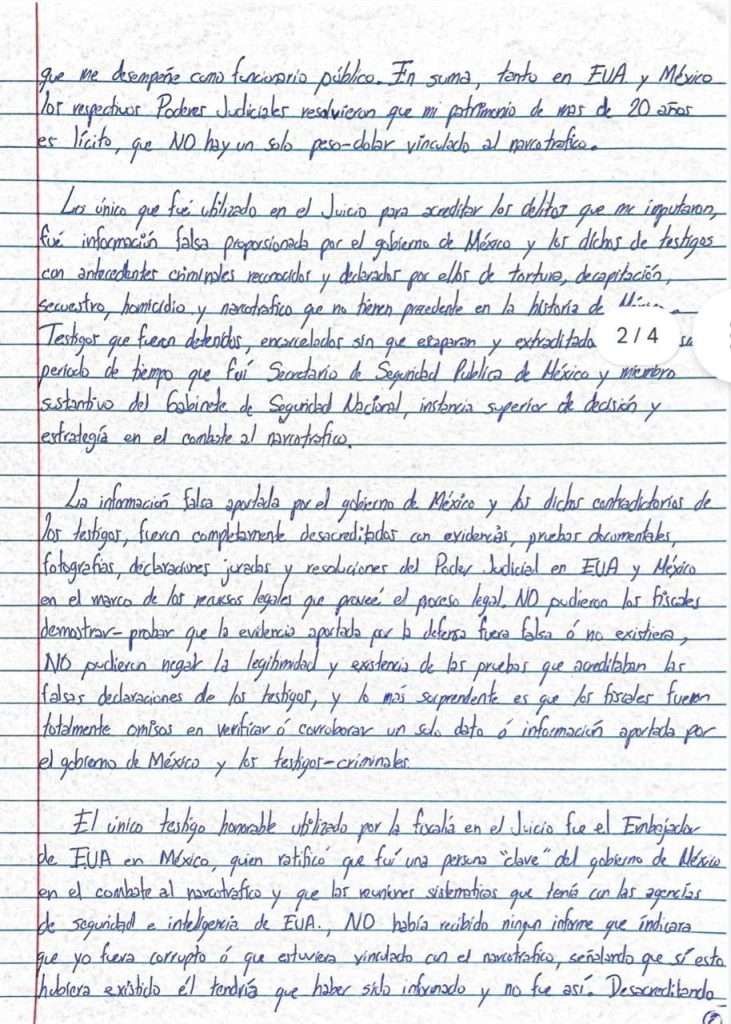 que me desempeñe como funcionario público. En suma, tanto en EUA y México
los respectivos Poderes Judiciales resolvieron que mi patrimonio de mas de 20 años
es lícito, que NO hay un solo peso-dolar vinculado al narcotrafico.
Lo único que fué utilizado en el Juicio para acreditar los delitos que me imputaron,
fué información falsa proporsionada por el gobierno de México y los dichos de testigos
con antecedentes criminales reconocidos y declarados por ellos de tortura, decapitación,
secuestro, homicidio y narcotrafico que no tienen precedente en la historia de
Testigos que fueron detenidos, encarcelados sin que escaparan y extraditado
2/4
periodo de tiempo que fuí Secretario de Seguridad Publica de México y miembro
sustantivo del Gabinete de Seguridad Nacional, instancia superior de decisión y
estrategía en el combate al narcotrafico.
La información falsa aportada por el gobierno de México y los dichos contradictorios de
los testigos, fueron completamente desacreditados con evidencias, pruebas documentales,
fotografías, declaraciones juradas y resoluciones del Poder Judicial en EUA y México
en el marco de los recursos legales que proveé el proceso legal. NO pudieron los fiscales
demostrar-probar que la evidencia aportada por la defensa fuera falsa ó no existiera,
NO pudieron negar la legitimidad y existencia de las pruebas que acreditaban las
falsas declaraciones de los testigos, y lo más sorprendente es que los fiscales fueron
totalmente omisos en verificar ó corroborar un solo dato ó información aportada por
el gobierno de México y los testigos-criminales.
El único testigo honorable utilizado por la fiscalia en el Juicio fue el Embajador
de EUA en México, quien ratificó que fuí una persona "clave" del gobierno de México
en el combate al narcotrafico y que las reuniones sistematicas que tenía con las agencias
de seguridad e inteligencia de EUA., NO había recibido ningun informe que indicara
que yo fuera corrupto ó que estuviera vinculado con el narcotrafico, señalando que sí esto
hubiera existido él tendría que haber sido informado y no fue así. Desacreditando